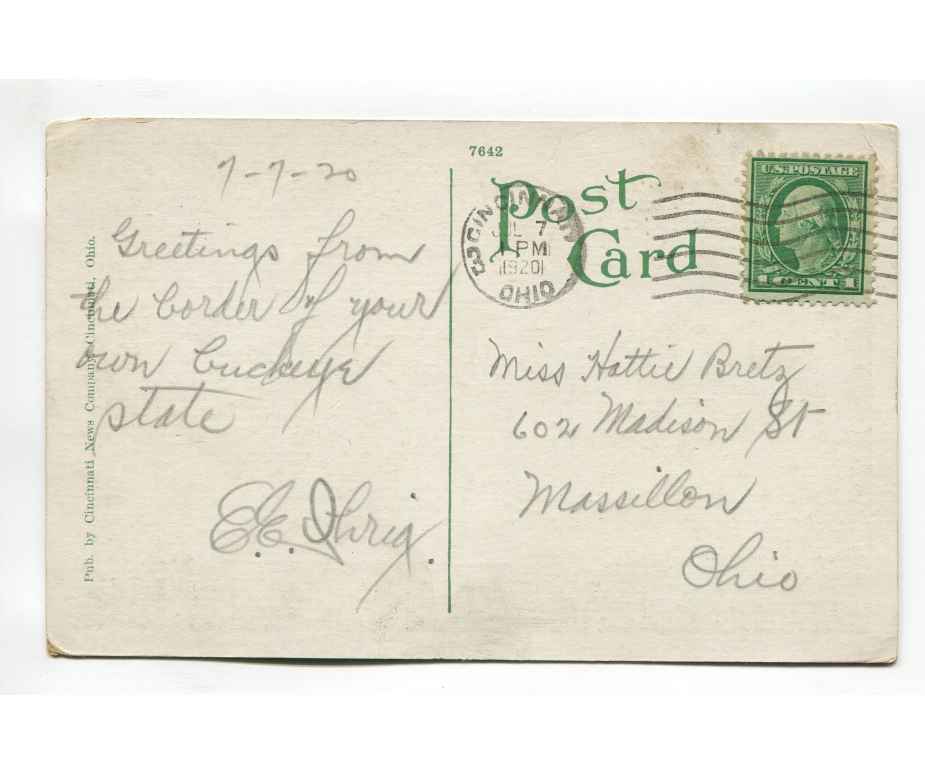 7642
Post
Card
7-7-20
Greetings from
the border of your
own buckeye
state
E.E. Ihrig.
Pub. by Cincinnati News Company, Cincinnati, Ohio.
CINCINNATI
JUL 7
PM
1920
OHIO
U.S. POSTAGE
1 CENT 1
Miss Hattie Bretz
602 Madison St
Massillon
Ohio